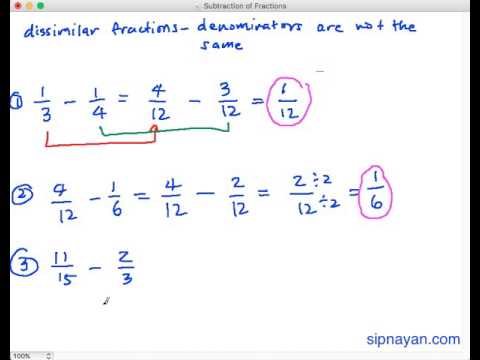 Subtraction of Fractions
dissimilar fractions - denominators are not the
same
① 1/3 - 1/4 = 4/12 - 3/12 = 1/12
② 4/12 - 1/6 = 4/12 - 2/12 = 2÷2/12÷2 = 1/6
③ 11/15 - 2/3
100%
sipnayan.com